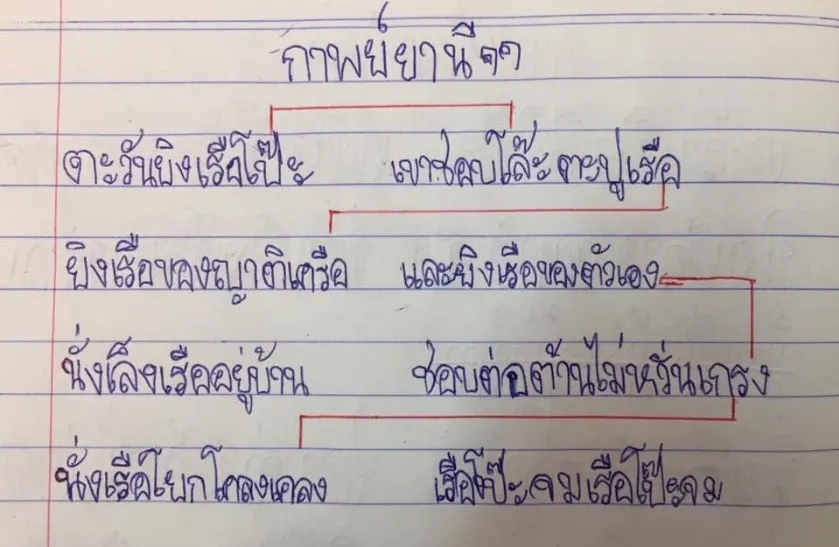 กาพย์ยานี ๑๑
ตะวันยิงเรือโป๊ะ เขาชอบโล๊ะตะปูเรือ
ยิงเรือของญาติเครือ และยิงเรือของตัวเอง
นั่งเล็งเรืออยู่บ้าน ชอบต่อต้านไม่หวั่นเกรง
นั่งเรือโยกโคลงเคลง เรือโป๊ะจมเรือโป๊ะจม